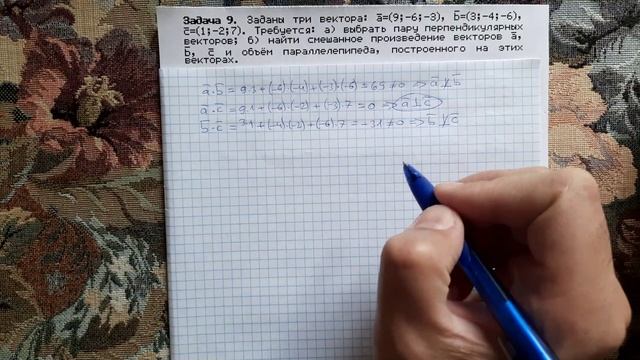 Задача 9. Заданы три вектора: a̅=(9;-6;-3), b̅=(3;-4;-6),
c̅=(1;-2;7). Требуется: а) выбрать пару перпендикулярных
векторов; б) найти смешанное произведение векторов a̅,
b̅, c̅ и объём параллелепипеда, построенного на этих
векторах.
a̅·b̅ = 9·3+(-6)·(-4)+(-3)(-6)=69≠0 ⇒ a̅ ⊥̸ b̅
a̅·c̅ = 9·1+(-6)·(-2)+(-3)·7=0 ⇒ a̅ ⊥ c̅
b̅·c̅ = 3·1+(-4)·(-2)+(-6)·7=-31≠0 ⇒ b̅ ⊥̸ c̅